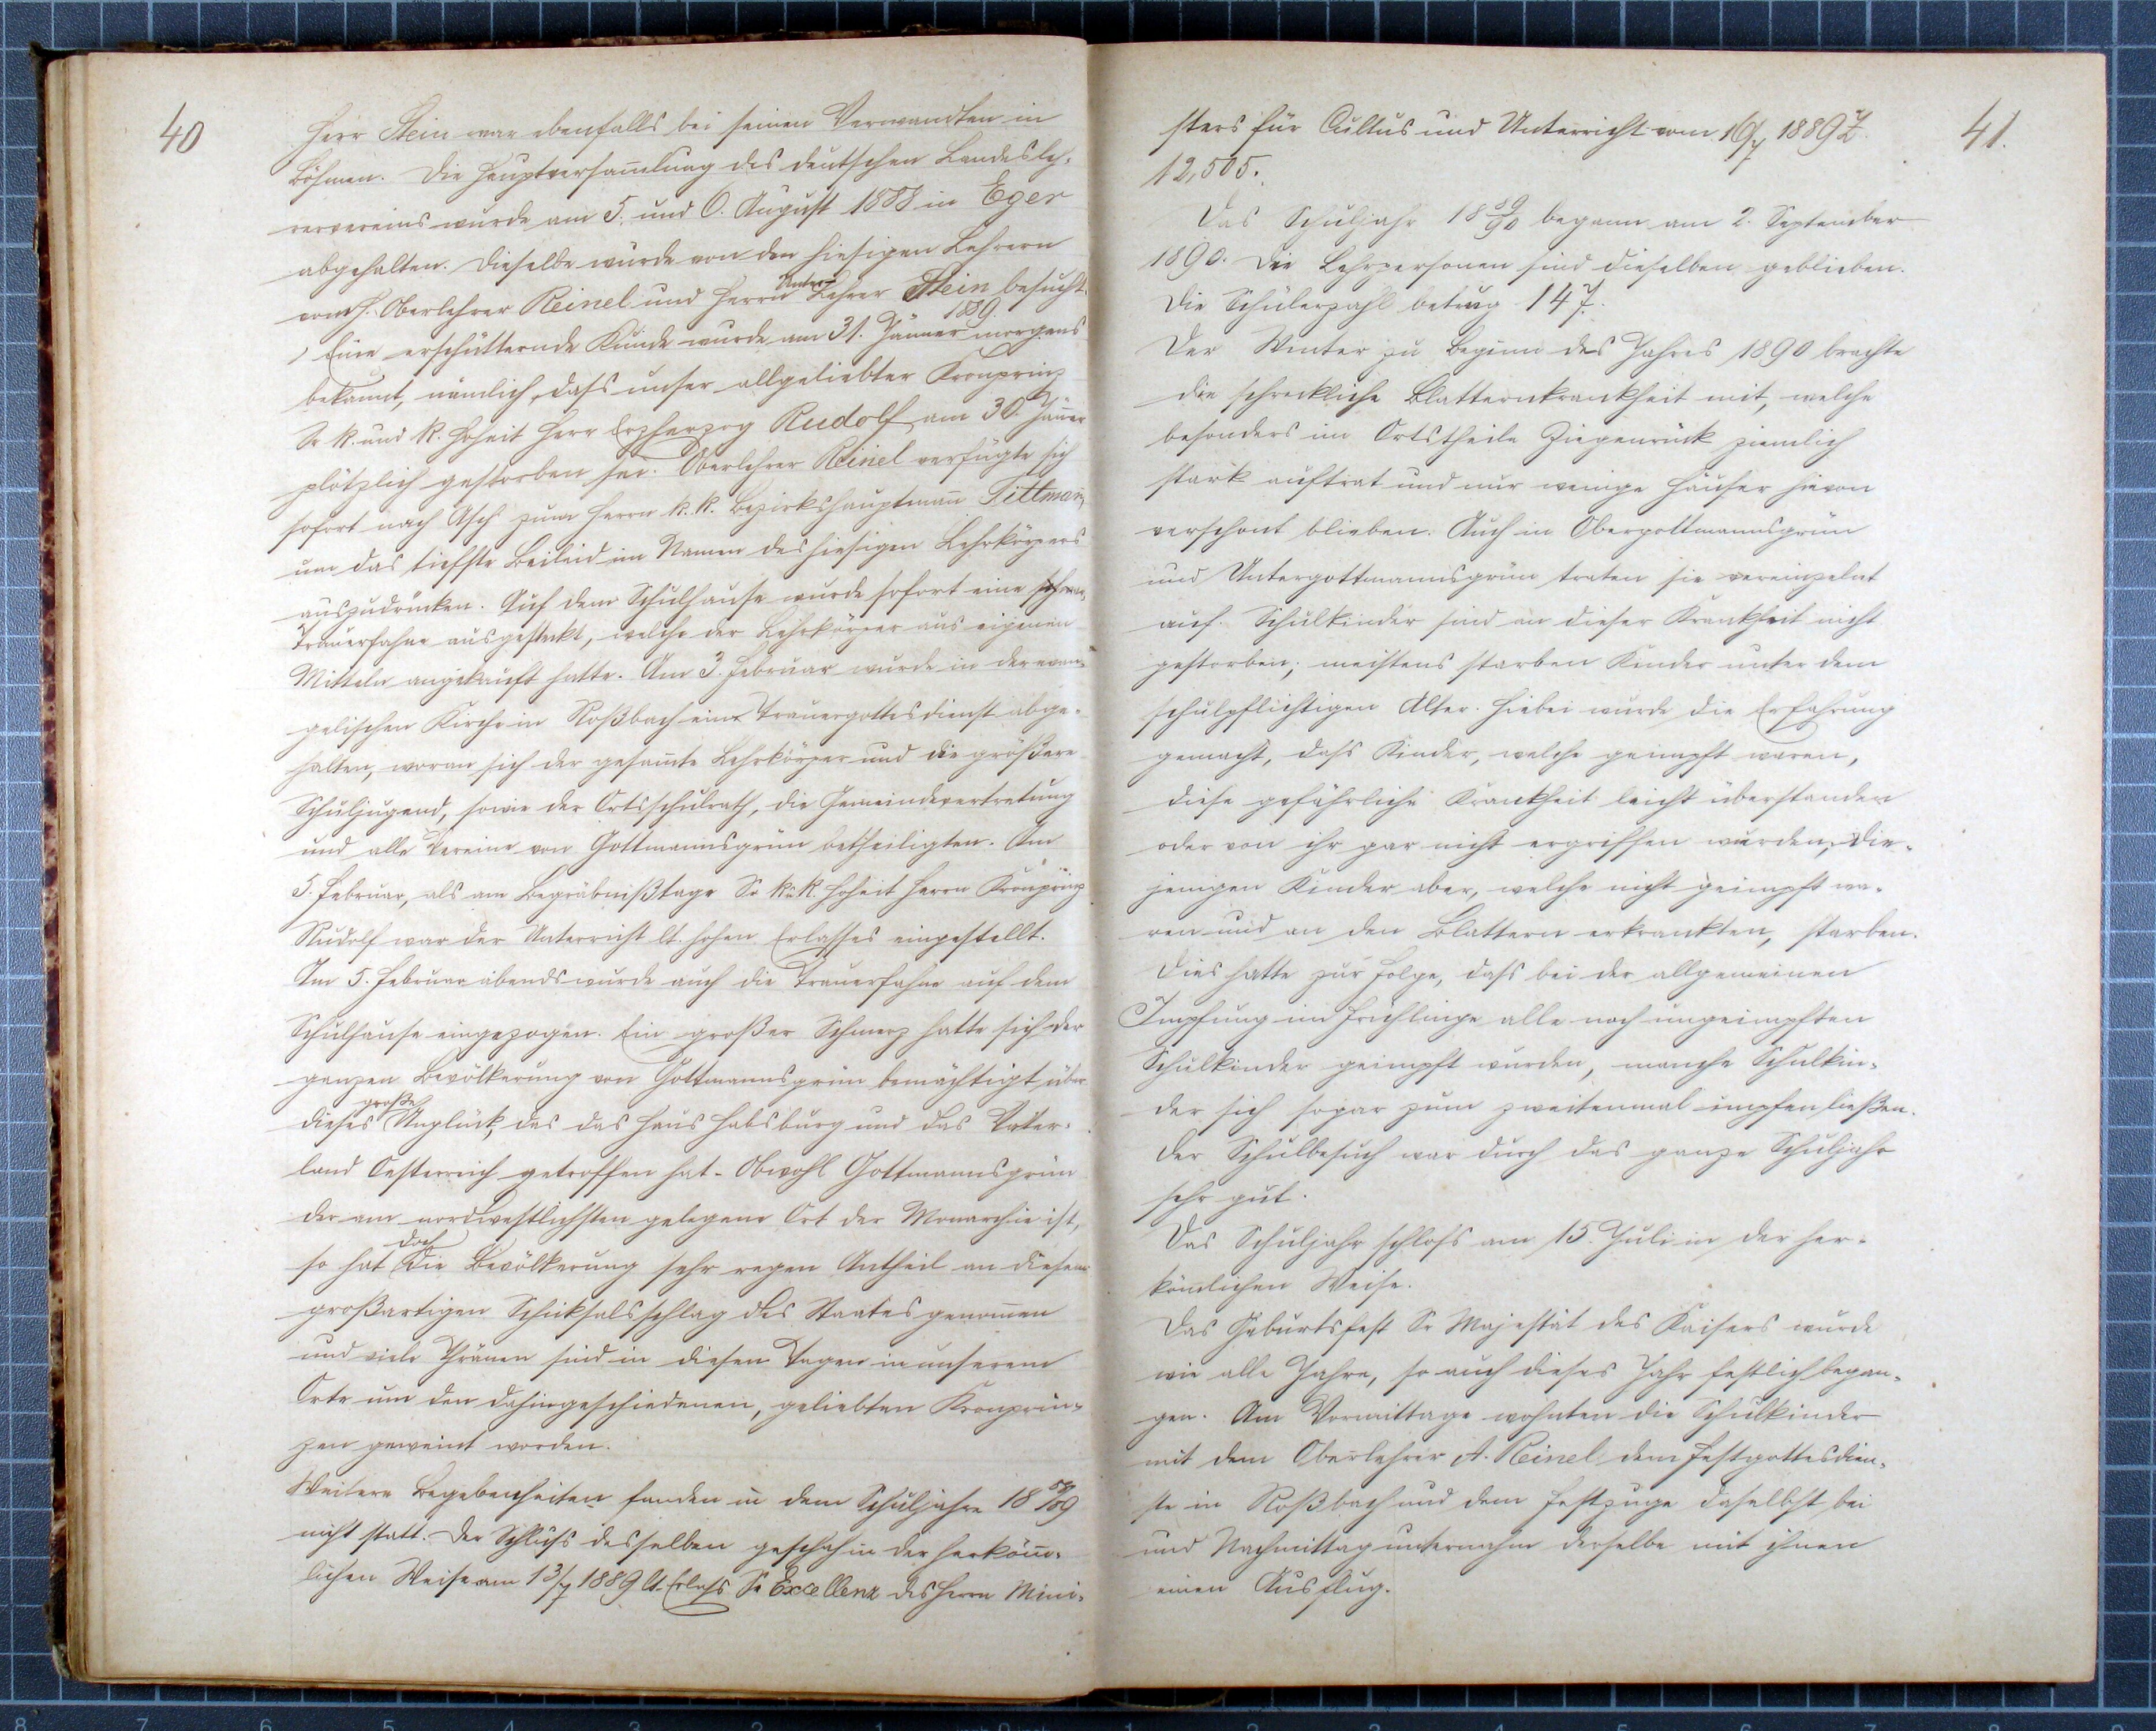 40
Herr Stein war ebenfalls bei seinen Verwandten in
Böhmen. Die Hauptversam̄lung des deutschen Landesleh-
rervereins wurde am 5. und 6. August 1888 in Eger
abgehalten. Dieselbe wurde von den hiesigen Lehrern
vom H. Oberlehrer Reinel und Herrn Unter- Lehrer Stein besucht.
1889.
Eine erschütternde Kunde wurde am 31. Jänner morgens
bekannt, nämlich, dass unser allgeliebter Kronprinz
Sr k. und k. Hoheit Herr Erzherzog Rudolf am 30. Jän̄er
plötzlich gestorben sei. Oberlehrer Reinel verfügte sich
sofort nach Asch zum Herrn k. k. Bezirkshauptman̄ Tittman̄,
um das tiefste Beileid im Namen des hiesigen Lehrkörpers
auszudrücken. Auf dem Schulhause wurde sofort eine
Trauerfahne ausgesteckt, welche der Lehrkörper aus eigenen
Mitteln angekauft hatte. Am 3. Februar wurde in der evan-
gelischen Kirche in Roßbach ein Trauergottesdienst abge-
halten, woran sich der gesam̄te Lehrkörper und die größere
Schuljugend, sowie der Ortsschulrath, die Gemeindevertretung
und alle Vereine von Gottmannsgrün betheiligten. Am
5. Februar, als am Begräbnißtage Sr k. u. k. Hoheit Herrn Kronprinz
Rudolf war der Unterricht lt. hohen Erlasses eingestellt.
Am 5. Februar abends wurde auch die Trauerfahne auf dem
Schulhause eingezogen. Ein großer Schmerz hatte sich der
ganzen Bevölkerung von Gottmannsgrün bemächtigt über
dieses große Unglück, das das Haus Habsburg und das Vater-
land Oesterreich getroffen hat. Obwohl Gottmannsgrün
der am nordwestlichsten gelegene Ort der Monarchie ist,
so hat doch die Bevölkerung sehr regen Antheil an diesem
großartigen Schicksalsschlag des Staates genom̄en
und viele Thränen sind in diesen Tagen in unserem
Orte um den dahingeschiedenen, geliebten Kronprin-
zen geweint worden.
Weitere Begebenheiten fanden in dem Schuljahre 18 88/89
nicht statt. Der Schluss desselben geschah in der herköm̄-
lichen Weise am 13/7 1889 lt. Erlass Sr Excellenz des Herrn Mini-
41.
sters für Cultus und Unterricht vom 16/7 1889 Z.
12,505.
Das Schuljahr 18 89/90 begann am 2. September
1890. Die Lehrpersonen sind dieselben geblieben.
Die Schülerzahl betrug 147.
Der Winter zu Beginn des Jahres 1890 brachte
die schreckliche Blatternkrankheit mit, welche
besonders im Ortstheile Ziegenrück ziemlich
stark auftrat und nur wenige Häuser hievon
verschont blieben. Auch in Obergottmannsgrün
und Untergottmannsgrün traten sie vereinzelnt
auf. Schulkinder sind an dieser Krankheit nicht
gestorben; meistens starben Kinder unter dem
schulpflichtigen Alter. Hiebei wurde die Erfahrung
gemacht, dass Kinder, welche geimpft waren,
diese gefährliche Krankheit leicht überstanden
oder von ihr gar nicht ergriffen wurden, die-
jenigen Kinder aber, welche nicht geimpft wa-
ren und an den Blattern erkrankten, starben.
Dies hatte zur Folge, dass bei der allgemeinen
Impfung im Frühlinge alle noch ungeimpften
Schulkinder geimpft wurden, manche Schulkin-
der sich sogar zum zweitenmal impfen ließen.
Der Schulbesuch war durch das ganze Schuljahr
sehr gut.
Das Schuljahr schloss am 15. Juli in der her-
köm̄lichen Weise.
Das Geburtsfest Sr Majestät des Kaisers wurde
wie alle Jahre, so auch dieses Jahr festlich began-
gen. Am Vormittage wohnten die Schulkinder
mit dem Oberlehrer A. Reinel dem Festgottesdien-
ste in Roßbach und dem Festzuge daselbst bei
und Nachmittag unternahm derselbe mit ihnen
einen Ausflug.
8 7 6 5 4 3 2 1 1 2 3 4 5 6 7 8